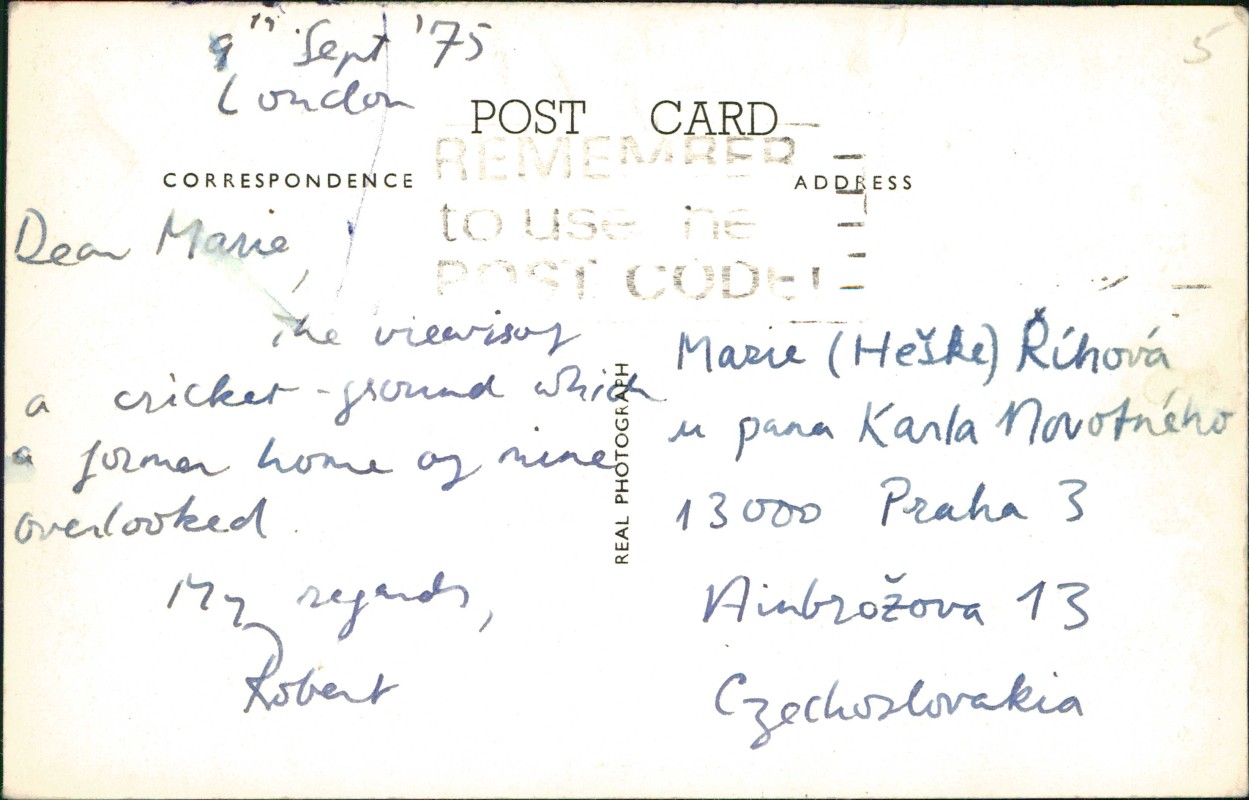 9th Sept '75
London
POST CARD
REMEMBER
to use the
POST CODE!
CORRESPONDENCE
ADDRESS
5
Dear Marie,
the view is of
a cricket-ground which
a former home of mine
overlooked.
My regards,
Robert
REAL PHOTOGRAPH
Marie (Heške) Říhová
u pana Karla Novotného
13000 Praha 3
Ambrožova 13
Czechoslovakia